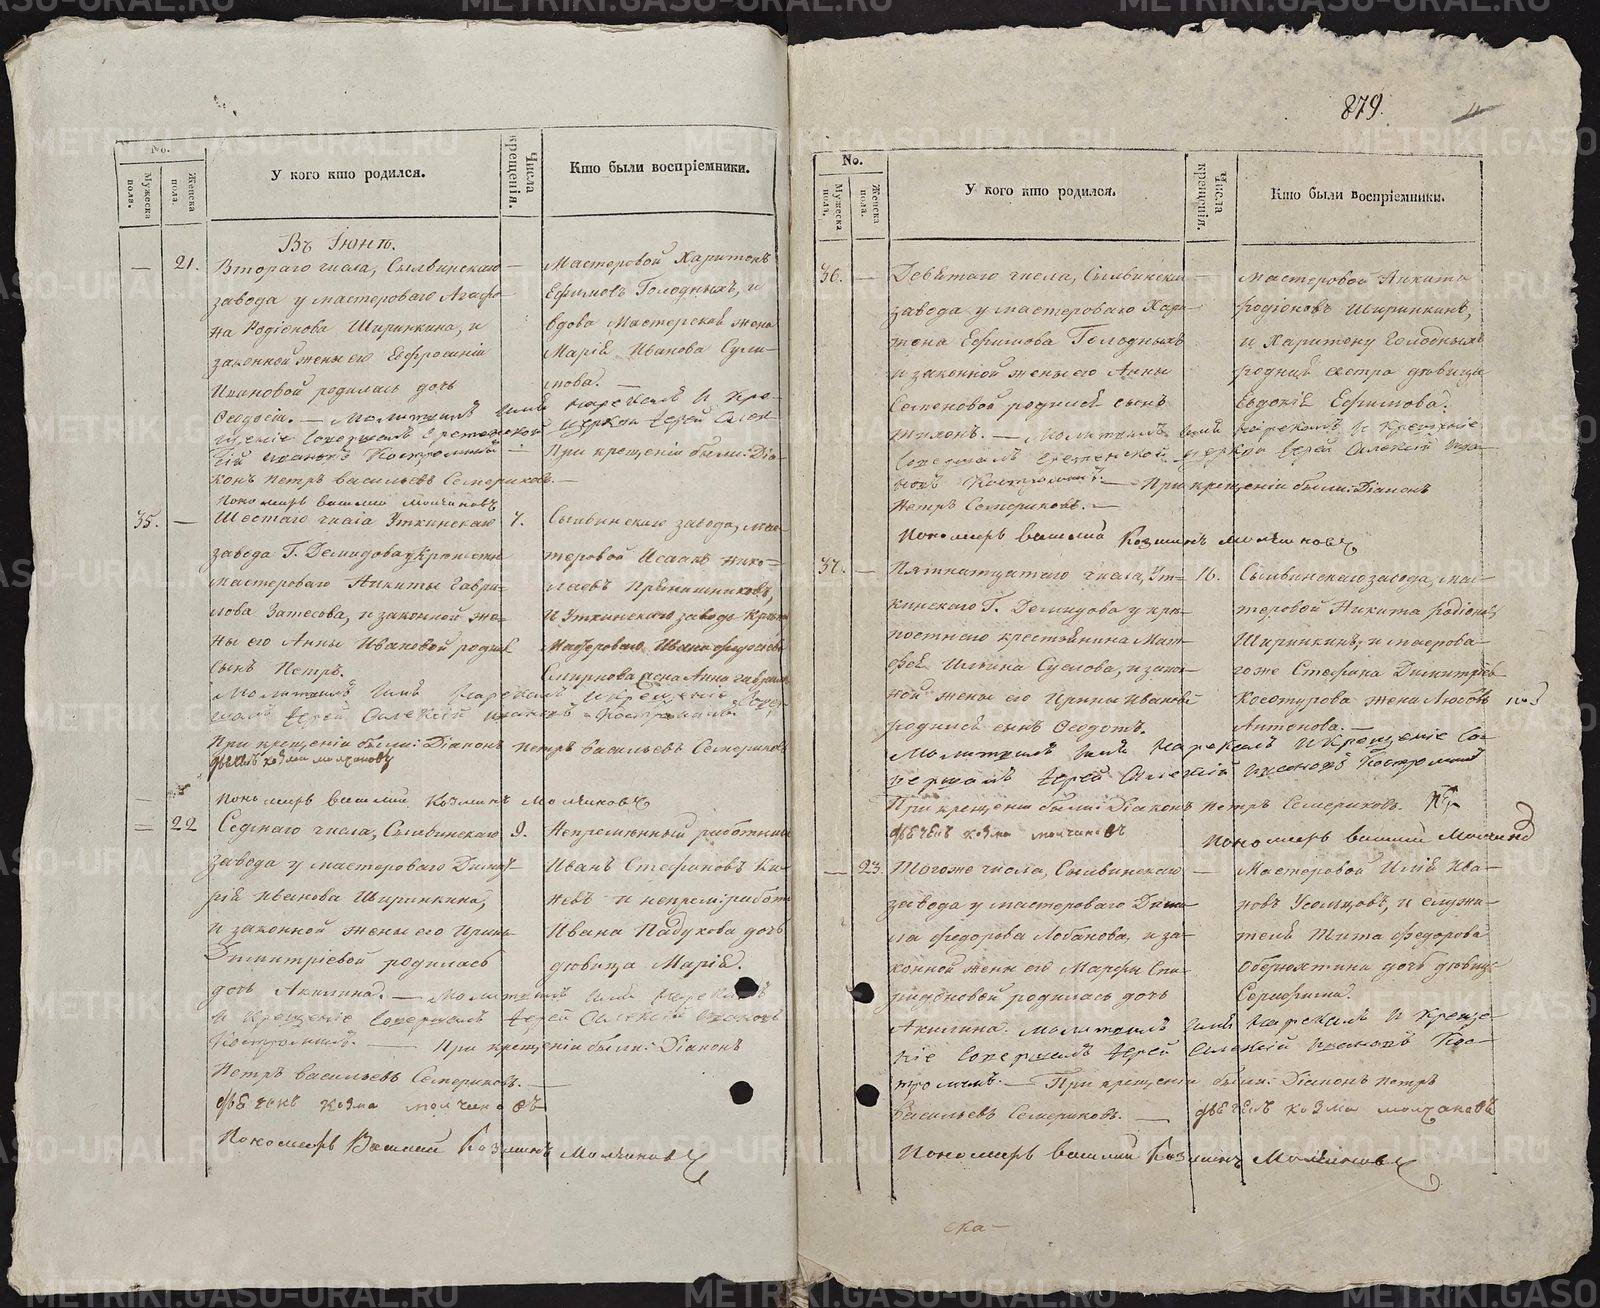 No.
Мужеска пола.
Женска пола.
У кого кто родился.
Числа крещенія.
Кто были воспріемники.
Въ Іюнѣ.
21. Втораго числа, Сылвинскаго
завода у мастероваго Агафо-
на Родіонова Ширинкина, и
законной жены его Евфросиніи
Ивановой родилась дочь
Ѳеодосія. — Молитвилъ имя нарекалъ и кре-
щеніе совершалъ Срѣтенской церкви Іерей Алек-
сій Ивановъ Костроминъ — При крещеніи были: Діа-
конъ Петръ Васильевъ Семериковъ. —
Пономарь Василий Молчановъ
Мастеровой Харитонъ
Ефимовъ Голодныхъ, и
вдова Мастерская жена
Марія Иванова Сули-
мова. —
35. Шестаго числа Уткинскаго 7.
завода Г. Демидова у Крѣпостн
мастероваго Никиты Гаври-
лова Затесова, и законной же-
ны его Анны Ивановой родился
сынъ Петръ.
Молитвилъ имя нарекалъ и крещеніе совер-
шалъ Іерей Алексій Ивановъ Костроминъ
При крещеніи были: Діаконъ Петръ Васильевъ Семериковъ
дьячекъ козма молчановъ
Пономарь Василий Козминъ Молчановъ
Сылвинскаго завода, мас-
теровой Исаакъ Нико-
лаевъ Пряничниковъ,
и Уткинскаго завода Крѣпостн
Мастероваго Ивана Ѳедосѣева
Смирнова жена Анна Гаврилова
22 Седмаго числа, Сылвинскаго 9.
завода у мастероваго Димит-
рія Иванова Ширинкина,
и законной жены его Ирины
Димитріевой родилась
дочь Акилина. — Молитвилъ имя нарекалъ
и крещеніе совершалъ Іерей Алексій Ивановъ
Костроминъ. — При крещеніи были: Діаконъ
Петръ Васильевъ Семериковъ. —
дьячекъ козма молчановъ
Пономарь Василий Козминъ Молчановъ
Непремѣнный работникъ
Иванъ Стефановъ
и непрем: работн
Ивана Падукова дочь
дѣвица Марія.
879.
4
No.
Мужеска пола.
Женска пола.
У кого кто родился.
Числа крещенія.
Кто были воспріемники.
36. Девятаго числа, Сылвинска
завода у мастероваго Хари-
тона Ефимова Голодныхъ
и законной жены его Анны
Семеновой родился сынъ
Тихонъ. — Молитвилъ имя нарекалъ и крещеніе
совершалъ Срѣтенской церкви Іерей Алексій Ива-
новъ Костроминъ. — При крещеніи были: Діаконъ
Петръ Семериковъ. —
Пономарь Василий Козминъ Молчановъ
мастеровой Никита
Родіоновъ Ширинкинъ,
и Харитону Голодныхъ
родная сестра дѣвица
Евдокія Ефимова.
37. Пятнатцатаго числа, Ут- 16.
кинскаго Г. Демидова у крѣ-
постнаго крестьянина Мат-
фея Ильина Суслова, и закон-
ной жены его Ирины Ивановой
родился сынъ Ѳеодотъ.
Молитвилъ имя нарекалъ и крещеніе со-
вершалъ Іерей Алексій Ивановъ Костроминъ
При крещеніи были: Діаконъ Петръ Семериковъ.
дьячекъ козма молчановъ
Пономарь Василий Молчановъ
Сылвинскаго завода, мас-
теровой Никита Родіоновъ
Ширинкинъ, и мастерова-
гоже Стефана Димитріева
Косотурова жена Любовь
Антонова. —
23. Тогоже числа, Сылвинскаго
завода у мастероваго Дани-
ла Ѳедорова Лобанова, и за-
конной жены его Марфы Спи-
ридоновой родилась дочь
Акилина. Молитвилъ имя нарекалъ и креще-
ніе совершалъ Іерей Алексій Ивановъ Кос-
троминъ. — При крещеніи были: Діаконъ Петръ
Васильевъ Семериковъ. — дьячекъ козма молчановъ
Пономарь Василий Козминъ Молчановъ
Мастеровой Илія Ива-
новъ Усольцовъ, и служи-
теля Тита Ѳедорова
Оберюхтина дочь дѣвица
Серафима.
ска-
METRIKI.GASO-URAL.RU